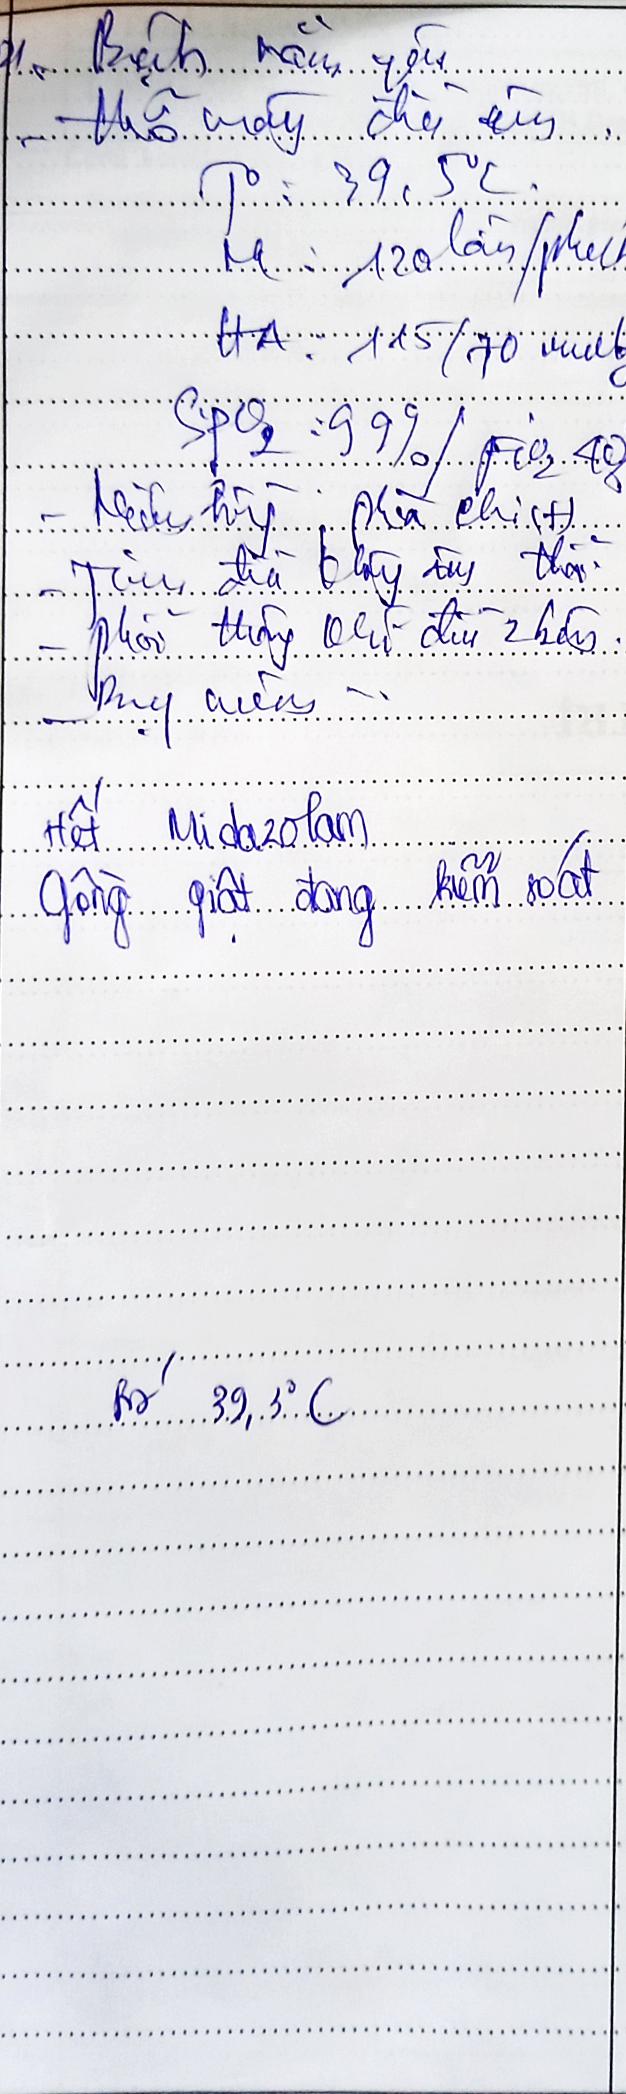 - Bệnh nằm yên
- thở máy đều êm.
T° : 39,5°C.
M : 120 lần/phút
HA : 115/70 mmHg
SpO2 : 99%/ FiO2 40
- Niêm hồng, phù chi (+)
- Tim đều không âm thổi
- phổi thông khí đều 2 bên.
- Bụng mềm
Hết Midazolam
Gồng giật đang kiểm soát
39,3°C